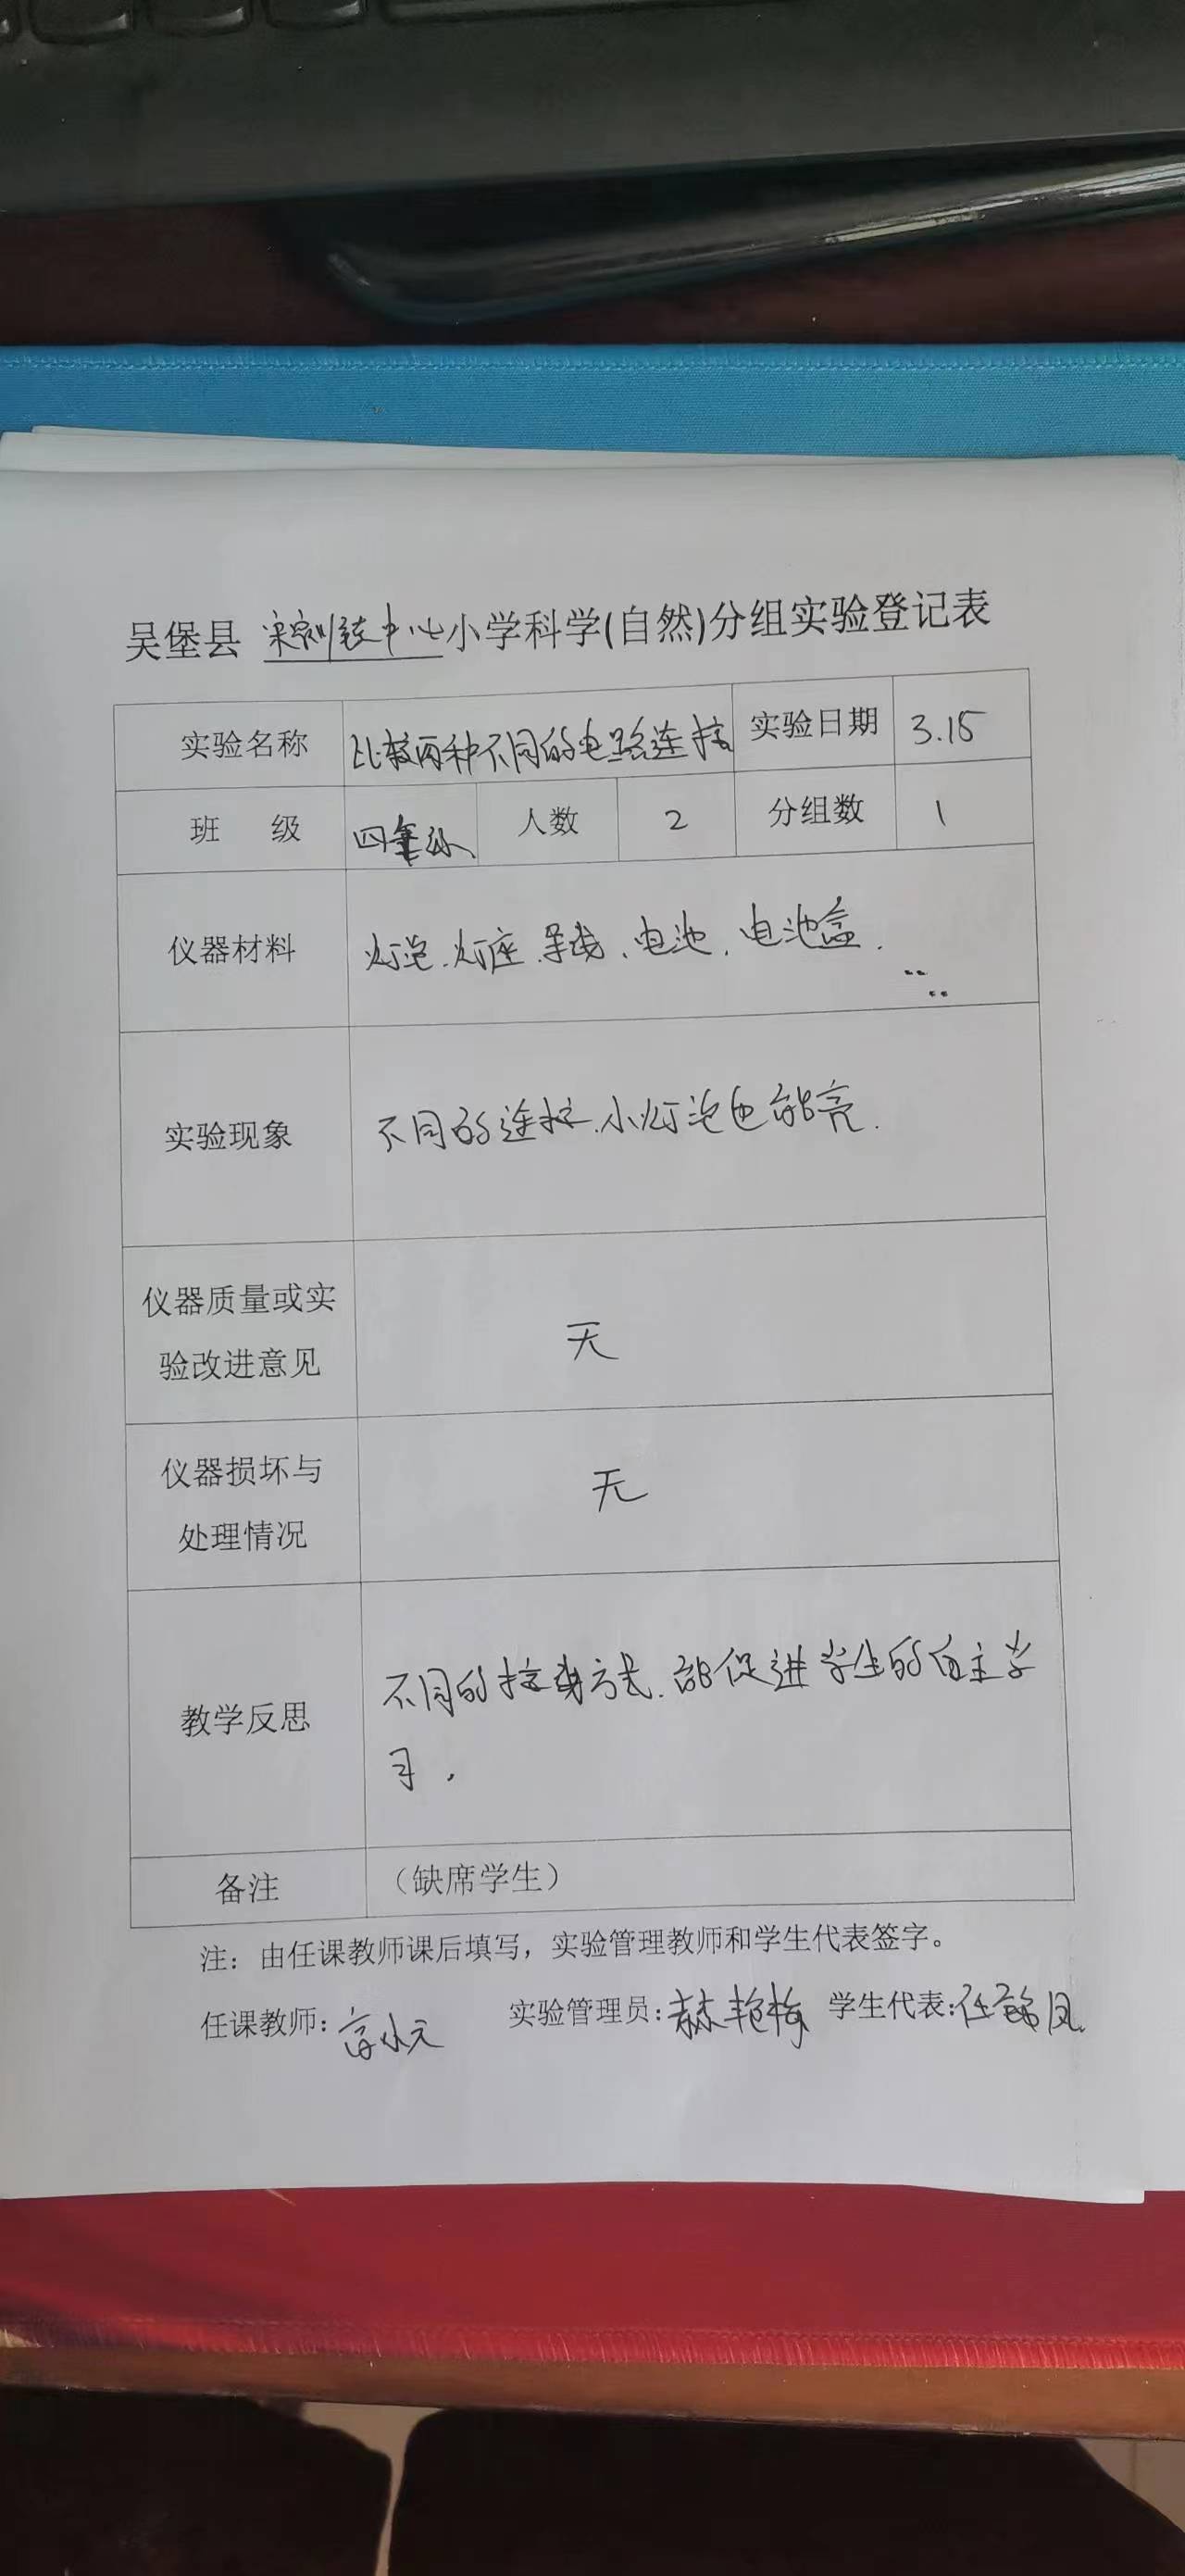 吴堡县 宋家川镇中心小学科学(自然)分组实验登记表
实验名称 比较两种不同的电路连接 实验日期 3.15
班 级 四年级 人数 2 分组数 1
仪器材料 灯泡、灯座、导线、电池、电池盒.
实验现象 不同的连接.小灯泡也能亮.
仪器质量或实
验改进意见 无
仪器损坏与
处理情况 无
教学反思 不同的接线方式.能促进学生的自主学
习.
备注 (缺席学生)
注:由任课教师课后填写,实验管理教师和学生代表签字。
任课教师: 实验管理员: 艳梅 学生代表:任